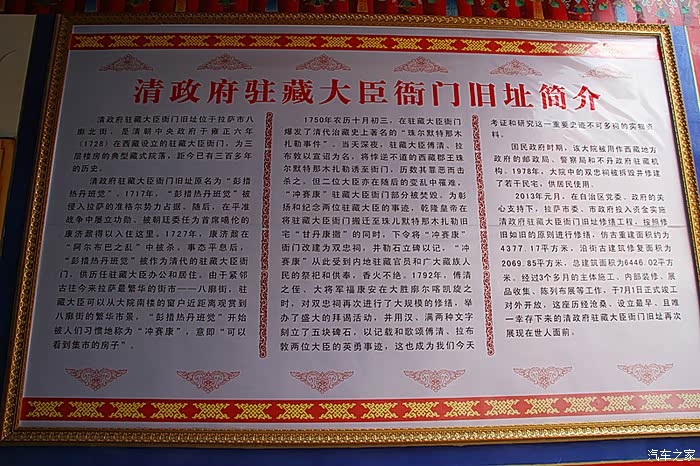 清政府驻藏大臣衙门旧址简介
清政府驻藏大臣衙门旧址位于拉萨市八
廓北街，是清朝中央政府于雍正六年
（1728）在西藏设立的驻藏大臣衙门，为三
层楼房的典型藏式院落，距今已有三百多年
的历史。
清政府驻藏大臣衙门旧址原名为“彭措
热丹班觉”。1717年，“彭措热丹班觉”被
侵入拉萨的准格尔势力占据。随后，在平准
战争中屡立功勋、被朝廷委任为首席噶伦的
康济鼐得以入住这里。1727年，康济鼐在
“阿尔布巴之乱”中被杀，事态平息后，
“彭措热丹班觉”被作为清代的驻藏大臣衙
门，供历任驻藏大臣办公和居住。由于紧邻
古往今来拉萨最繁华的街市——八廓街，驻
藏大臣可以从大院南楼的窗户近距离观赏到
八廓街的繁华市景，“彭措热丹班觉”开始
被人们习惯地称为“冲赛康”，意即“可以
看到集市的房子”。
1750年农历十月初三，在驻藏大臣衙门
爆发了清代治藏史上著名的“珠尔默特那木
扎勒事件”。当天深夜，驻藏大臣傅清、拉
布敦以宣诏为名，将悖逆不道的西藏郡王珠
尔默特那木扎勒诱至衙门，历数其罪恶而击
杀之。但二位大臣亦在随后的变乱中罹难，
“冲赛康”驻藏大臣衙门部分被焚毁。为彰
扬和纪念两位驻藏大臣的事迹，乾隆皇帝在
将驻藏大臣衙门搬迁至珠尔默特那木扎勒旧
宅“甘丹康撒”的同时，下令将“冲赛康”
衙门改建为双忠祠，并勒石立碑以记，“冲
赛康”从此受到内地驻藏官员和广大藏族人
民的祭祀和供奉，香火不绝。1792年，傅清
之侄、大将军福康安在大胜廓尔喀凯旋之
时，对双忠祠再次进行了大规模的修缮，举
办了盛大的拜谒活动，并用汉、满两种文字
刻立了五块碑石，以记载和歌颂傅清、拉布
敦两位大臣的英勇事迹，这也成为我们今天
考证和研究这一重要史迹不可多得的实物资
料。
国民政府时期，该大院被用作西藏地方
政府的邮政局、警察局和不丹政府驻藏机
构。1978年，大院中的双忠祠被拆毁并修建
了若干民宅，供居民使用。
2013年元月，在自治区党委、政府的关
心支持下，拉萨市委、市政府投入资金实施
清政府驻藏大臣衙门旧址修缮工程，按照修
旧如旧的原则进行修缮，仿古重建面积约为
4377.17平方米，沿街古建筑修复面积为
2069.85平方米，总建筑面积为6446.02平方
米。经过3个多月的主体施工、内部装修、展
品收集、陈列布展等工作，于7月1日正式竣工
对外开放，这座历经沧桑、设立最早、且唯
一幸存下来的清政府驻藏大臣衙门旧址再次
展现在世人面前。
汽车之家